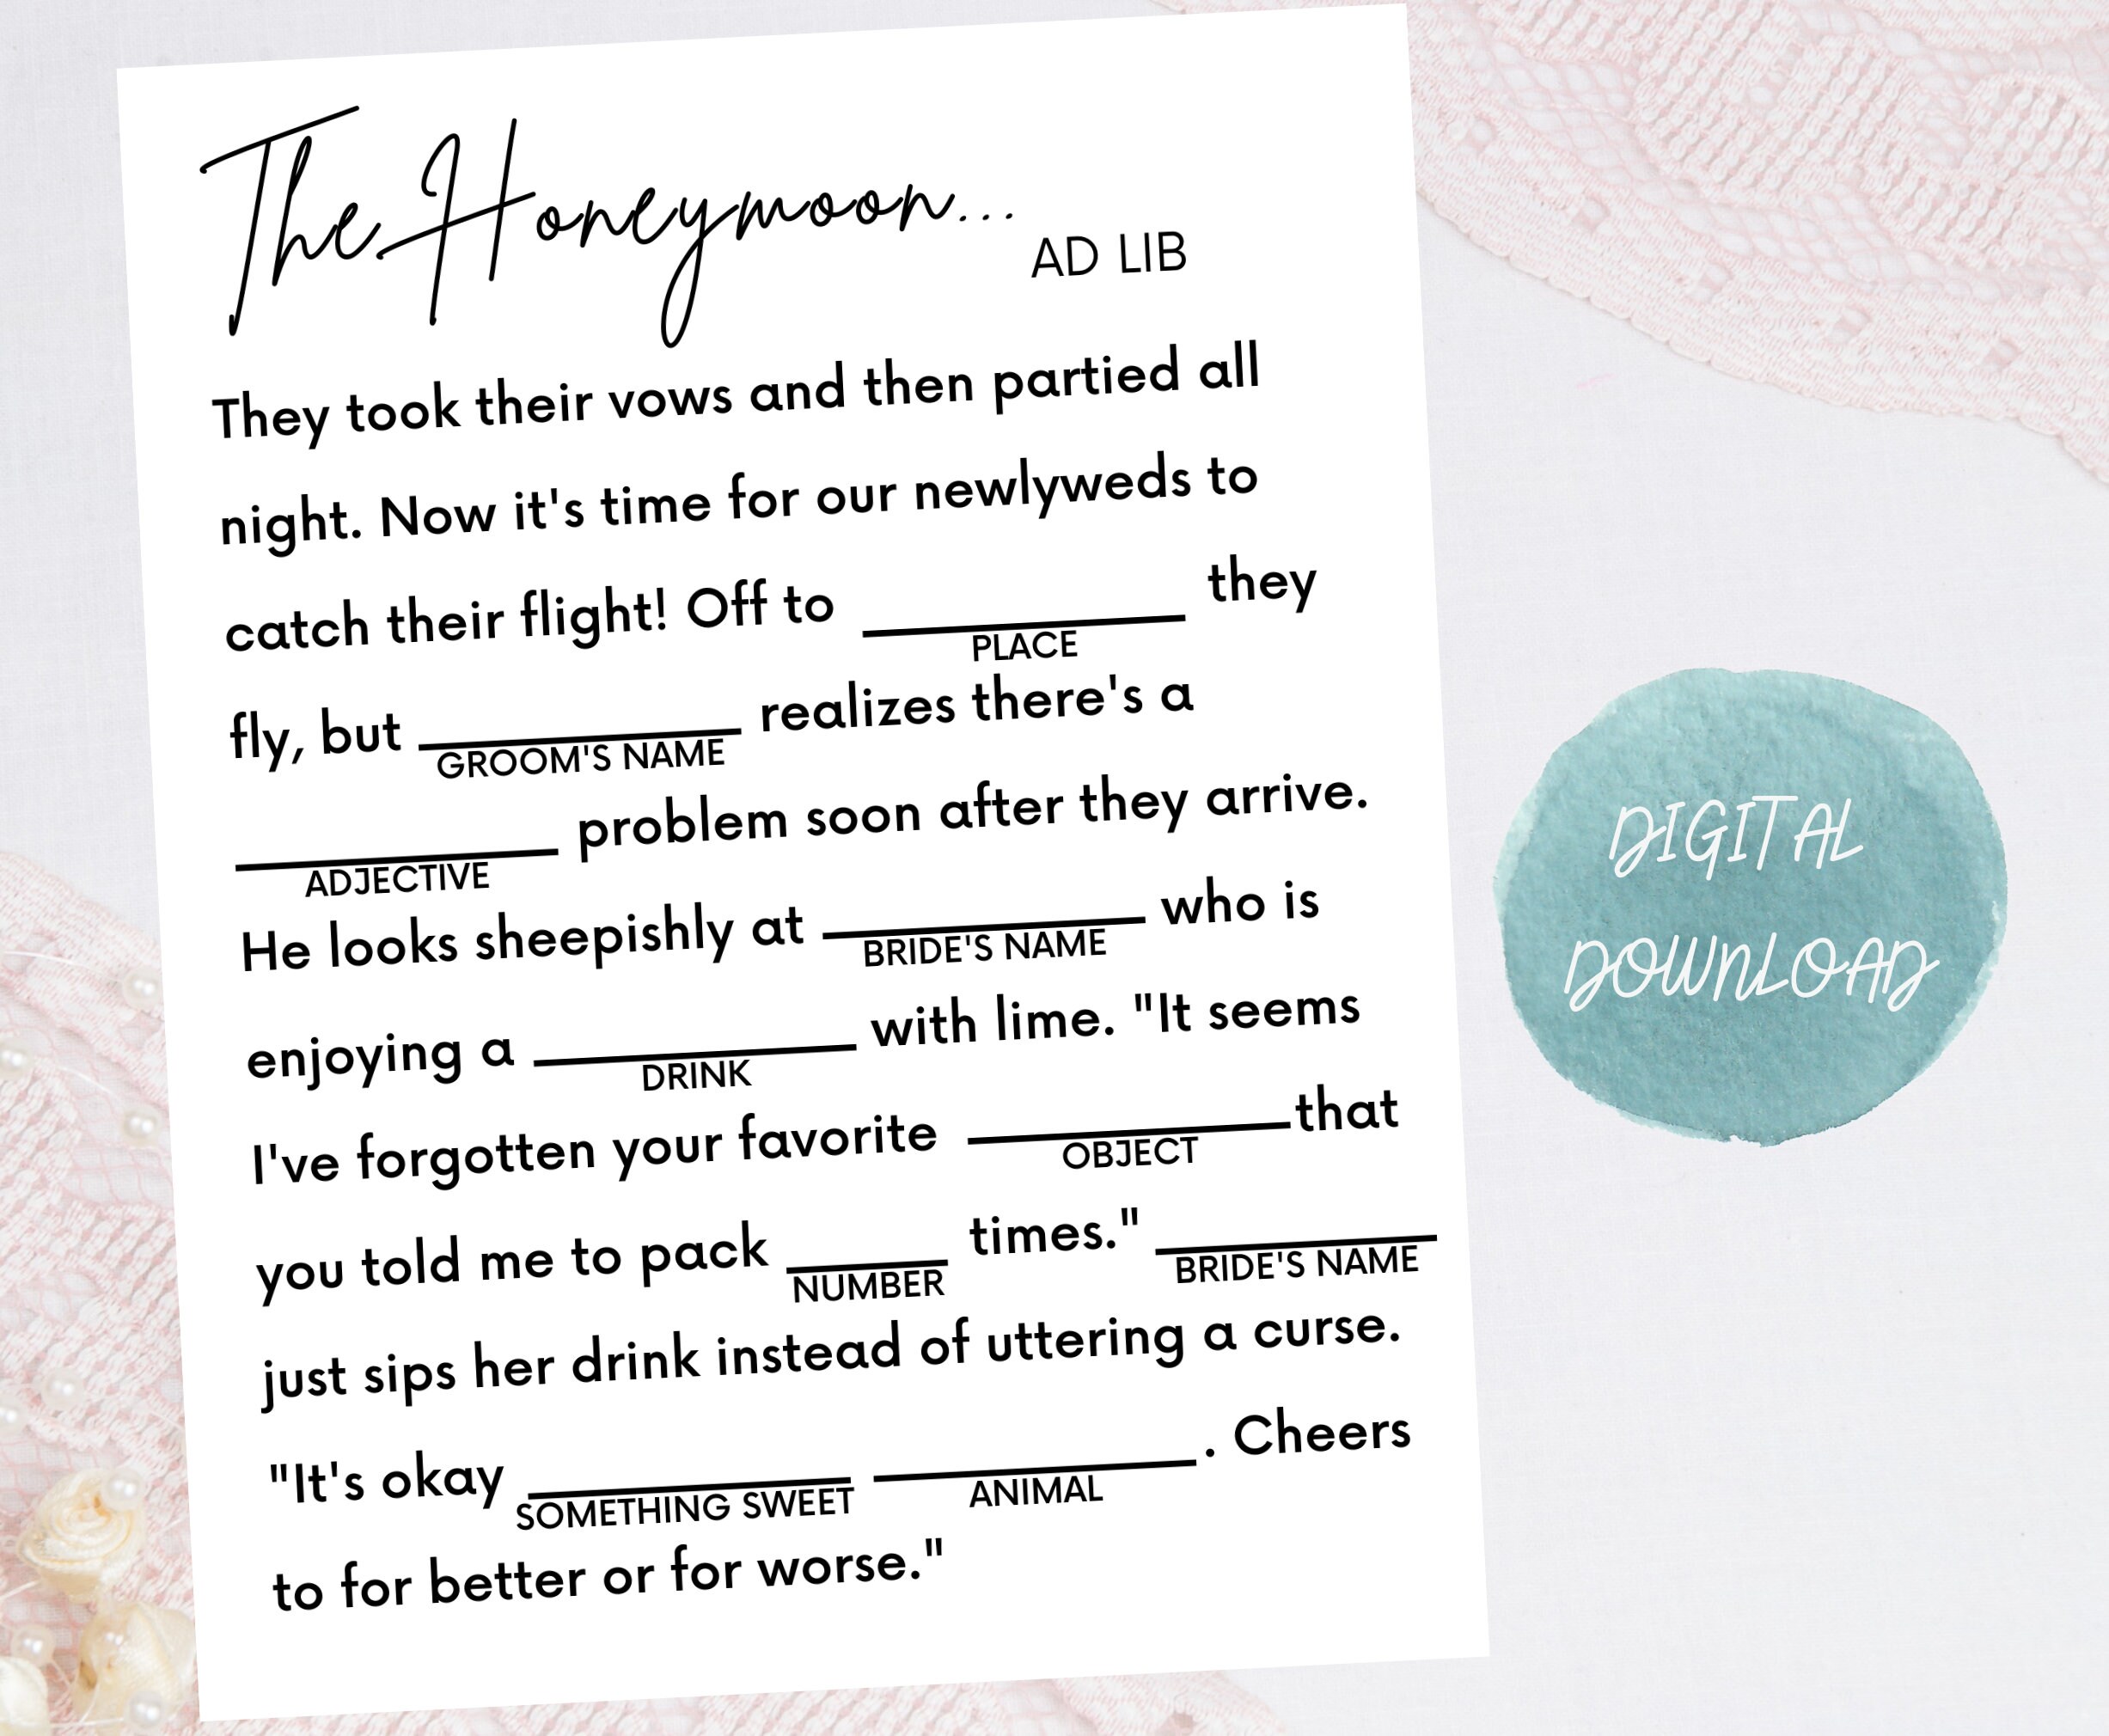 The Honeymoon...
AD LIB
They took their vows and then partied all
night. Now it's time for our newlyweds to
catch their flight! Off to ____ they
PLACE
fly, but ____ realizes there's a
GROOM'S NAME
____ problem soon after they arrive.
ADJECTIVE
He looks sheepishly at ____ who is
BRIDE'S NAME
enjoying a ____ with lime. "It seems
DRINK
I've forgotten your favorite ____ that
OBJECT
you told me to pack ____ times." ____
NUMBER BRIDE'S NAME
just sips her drink instead of uttering a curse.
"It's okay ____ ____. Cheers
SOMETHING SWEET ANIMAL
to for better or for worse."
DIGITAL
DOWNLOAD